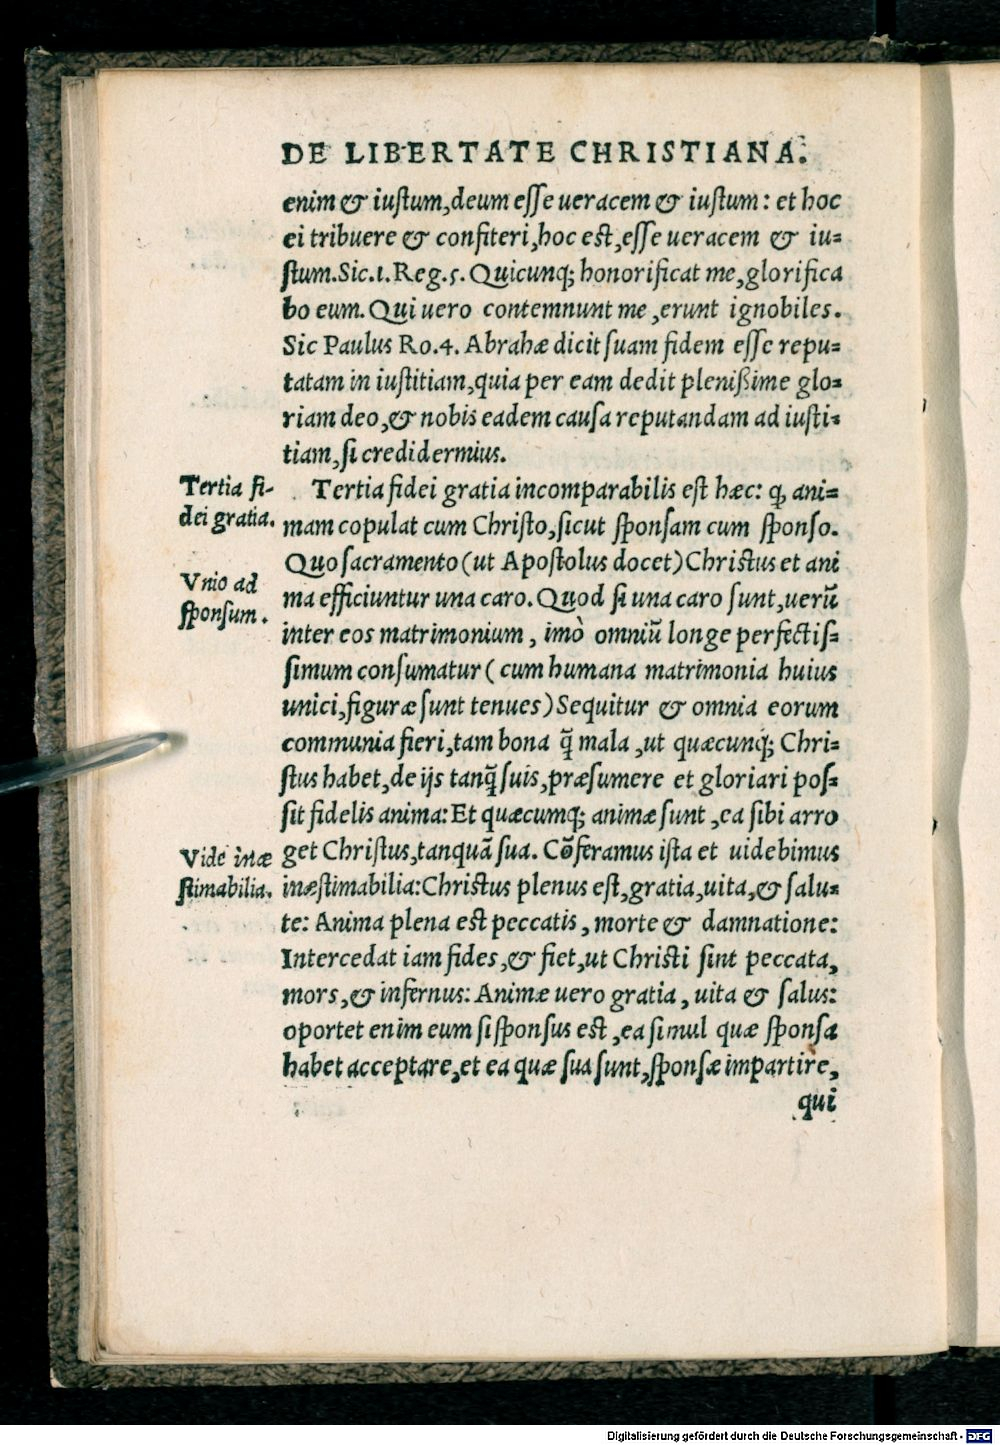 DE LIBERTATE CHRISTIANA.
enim & iustum, deum esse ueracem & iustum: et hoc
ei tribuere & confiteri, hoc est, esse ueracem & iu=
stum. Sic. 1. Reg. 5. Quicunq; honorificat me, glorifica
bo eum. Qui uero contemnunt me, erunt ignobiles.
Sic Paulus Ro. 4. Abrahæ dicit suam fidem esse repu=
tatam in iustitiam, quia per eam dedit plenißime glo=
riam deo, & nobis eadem causa reputandam ad iusti=
tiam, si crediderimus.
Tertia fi-
dei gratia.
Tertia fidei gratia incomparabilis est hæc: ꝙ ani=
mam copulat cum Christo, sicut sponsam cum sponso.
Vnio ad
sponsum.
Quo sacramento (ut Apostolus docet) Christus et ani
ma efficiuntur una caro. Quod si una caro sunt, uerū
inter eos matrimonium, imò omniū longe perfectis=
simum consumatur (cum humana matrimonia huius
unici, figuræ sunt tenues) Sequitur & omnia eorum
communia fieri, tam bona q̃ mala, ut quæcunq; Chri=
stus habet, de ijs tanq̃ suis, præsumere et gloriari pos=
sit fidelis anima: Et quæcumq; animæ sunt, ea sibi arro
Vide inæ
stimabilia.
get Christus, tanquā sua. Cōferamus ista et uidebimus
inæstimabilia: Christus plenus est, gratia, uita, & salu=
te: Anima plena est peccatis, morte & damnatione:
Intercedat iam fides, & fiet, ut Christi sint peccata,
mors, & infernus: Animæ uero gratia, uita & salus:
oportet enim eum si sponsus est, ea simul quæ sponsa
habet acceptare, et ea quæ sua sunt, sponsæ impartire,
qui
Digitalisierung gefördert durch die Deutsche Forschungsgemeinschaft - DFG